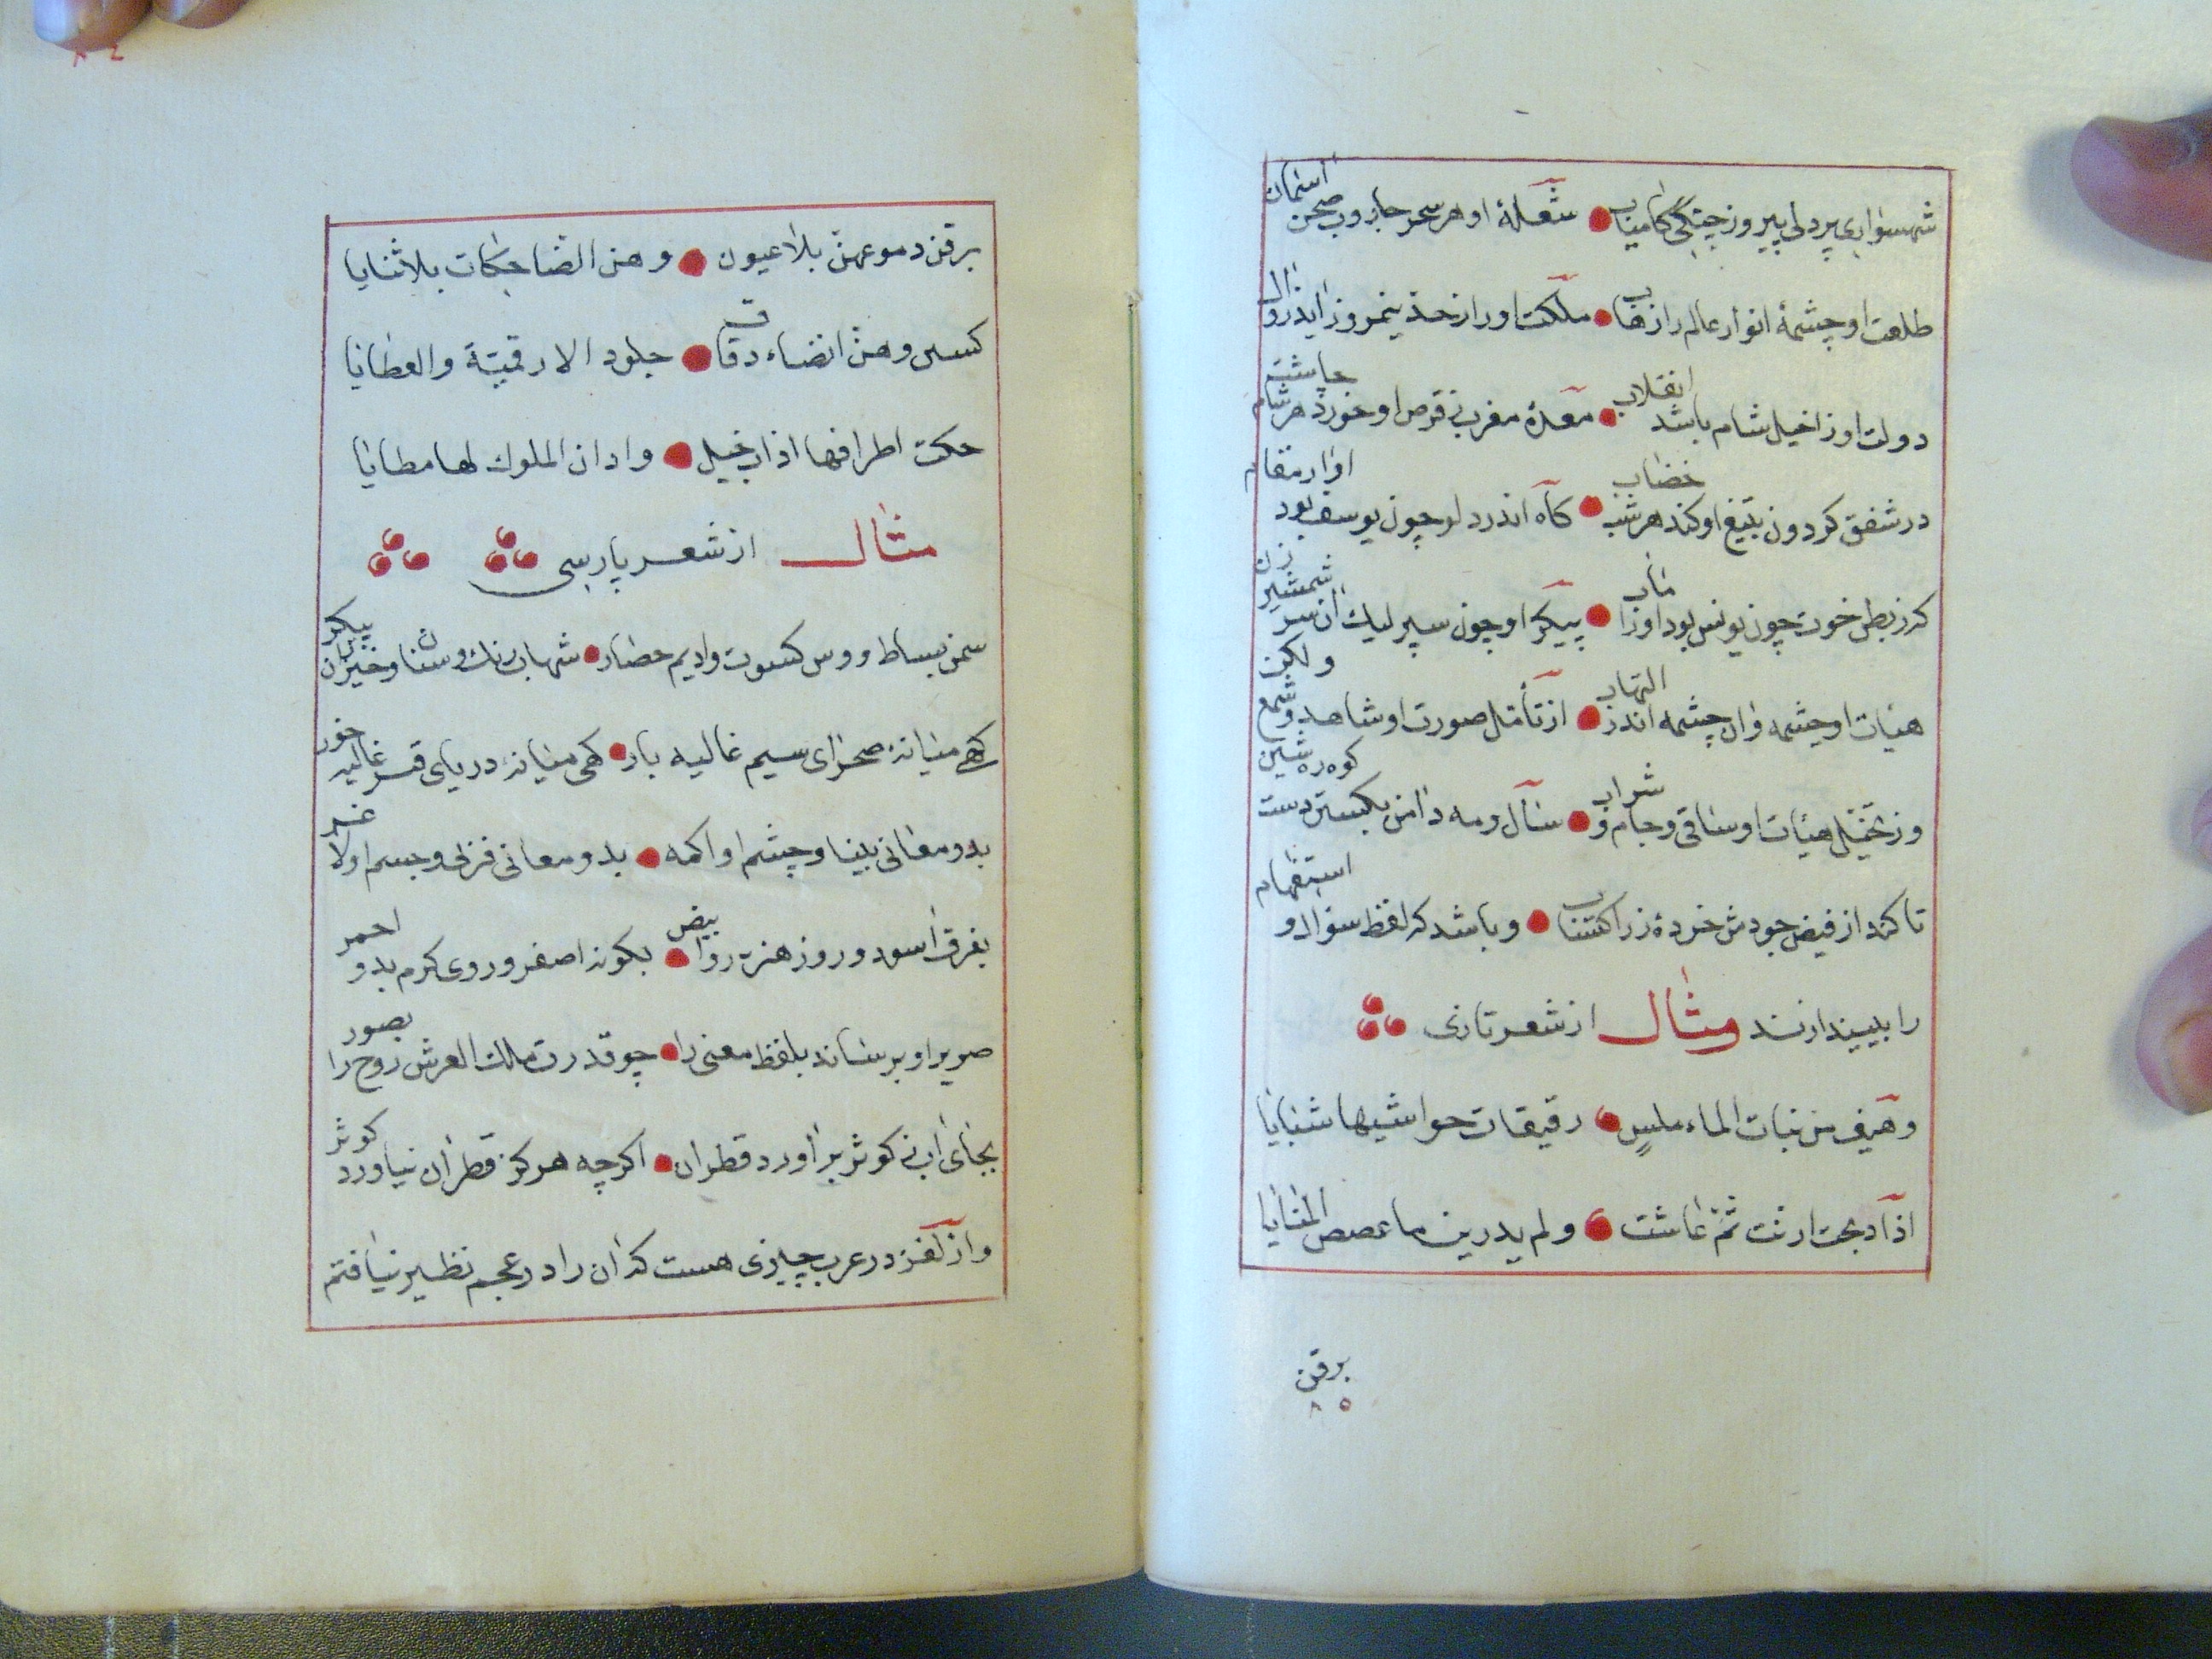 شهسواری پردلی پیروز جنکی کامیاب شعلهٔ او هر سحر جاروب صحن اسمان
طلعت او چشمهٔ انوار عالم را زهاب ملکت او را ز حد نیمروز اید زوال
دولت او زا خیل شام باشد انقلاب معدهٔ مغرب ز قرص او خورد هر شام چاشت
در شفق کردون بتیغ او کند هر شب خضاب کاه اندر دلو چون یوسف بود افرار مقام
که ز بطن حوت چون یونس بود او را ماب پیکر او چون سپر لیک ان سپر شمشیر زن
هیات او چشمه وان چشمه اندر التهاب از تامل صورت او شاهد و شمع ولکن
وز تخیل هیات او ساقی و جام و شراب سال و مه دامن بکسترده ست کوه ره نشین
تا کند از فیض جودش خردهٔ زر اکتساب و باشد که لفظ سؤال و استفهام
را بییندارند ومثال از شعر تازی
وهیف من نبات الماء ملس رقیقات حواشیها شبایا
اذا دبجت ارنت ثم عاشت ولم یدرین ما غصص المنایا
برقن
٨٥
٨٤
برقن دموعهن بلا عیون وهن الضاحکات بلا ثنایا
کسین وهن انضاء دقاق جلود الارقمیة والعظایا
حکت اطرافها اذاب خیل واذان الملوک لها مطایا
مثال از شعر پارسی
سمن بساط و وس کسوت وادیم حصار شهاب رنک وسنان و خیزران پیکر
کهی میانهٔ صحرای سیم غالیه بار کهی میانهٔ دریای قیر غالیه خور
بدو معانی بینا و چشم او اکمه بدو معانی فربی و جسم او لاغر
بفرق اسود و روز هنر بدو ابیض بکونه اصفر و روی کرم بدو احمر
صریر او برساند بلفظ معنی را چو قدرت مالک العرش روح را بصور
بجای اب ز کوثر بر اورد قطران اکرچه هرکز قطران نیاورد کوثر
واز لغز در عرب چیزی هست که ان را در عجم نظیر نیافتم